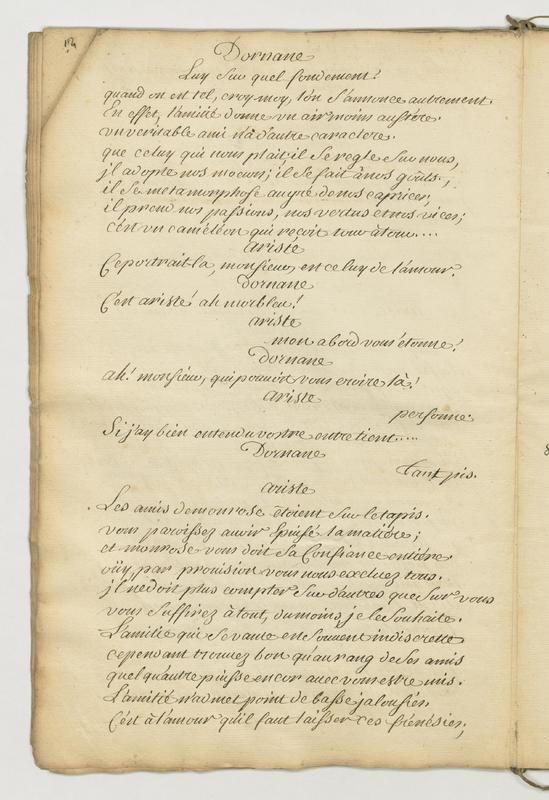 Dornane
Luy sur quel fondement?
quand on est tel, croy-moy, l'on s'annonce autrement.
En effet, l'amitié donne un air moins austère.
un veritable ami n'a d'autre caractere.
que celuy qui nous plait; il se regle sur nous,
il adopte nos mœurs; il se fait à nos goûts.,
il se metamorphose au gré de nos caprices,
il prend nos passions, nos vertus et nos vices;
c'est un caméléon qui reçoit tour à tour....
ariste
Ce portrait-la, monsieur, est celuy de l'amour.
dornane
C'est ariste! ah morbleu!
ariste
mon abord vous étonne!
dornane
ah! monsieur, qui pouvoit vous croire là!
ariste
personne.
Si j'ay bien entendu vostre entretient.....
Dornane
tant pis.
ariste
Les amis de monrose étoient sur le tapis.
vous paroissez avoir épuisé la matiére;
et monrose vous doit sa Confiance entiére.
oüy, par provision vous nous excluez tous.
il ne doit plus compter sur d'autres que sur vous
vous suffirez à tout, du moins je le souhaite.
L'amitié qui se vante est souvent indiscrette
cependant trouvez bon qu'au rang de ses amis
quelqu'autre puisse encor avec vous estre mis.
L'amitié n'admet point de basse jalousie.
C'est à l'amour qu'il faut laisser ces frénésies,